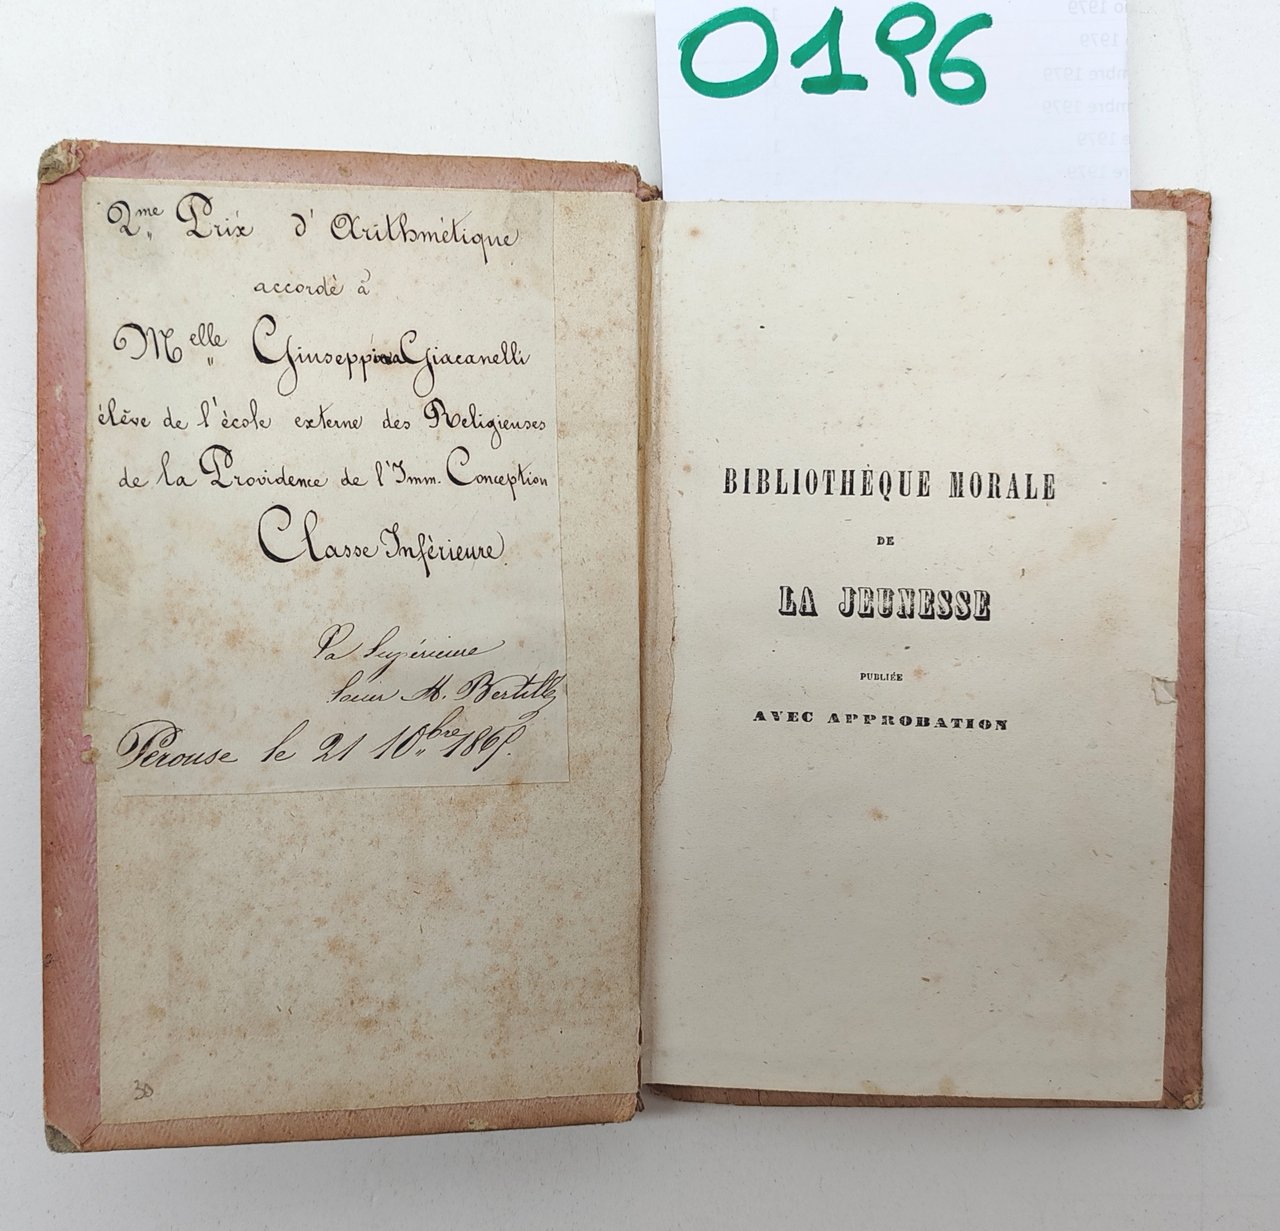 O196
2me Prix d'Arithmétique
accordé à
Melle Giuseppina Giacanelli
élève de l'école externe des Religieuses
de la Providence de l'Imm. Conception
Classe Inférieure
La Supérieure
Soeur M. Bertille
Pérouse le 21 10bre
30
BIBLIOTHÈQUE MORALE
DE
LA JEUNESSE
PUBLIÉE
AVEC APPROBATION